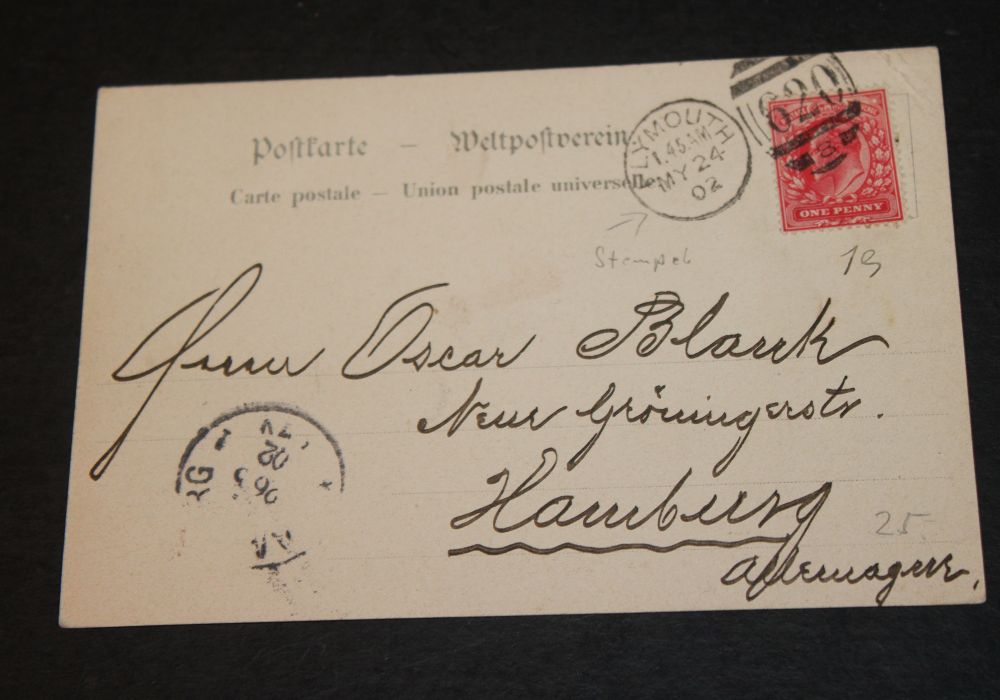 Postkarte – Weltpostverein
Carte postale – Union postale universelle
PLYMOUTH
1.45.AM
MY 24
02
620
8
ONE PENNY
Stempel
19
Herrn Oscar Blanck
Neue Gröningerstr.
Hamburg
25.-
Allemagne,
RG 1
02
26.5